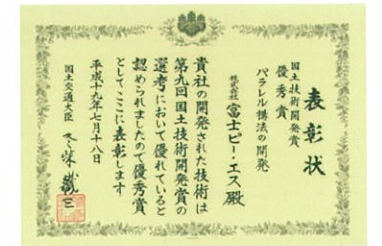 表彰状
国土技術開発賞
優秀賞
パラレル構法の開発
株式会社 富士ピー・エス殿
貴社の開発された技術は
第九回国土技術開発賞の
選考において優れていると
認められましたので優秀賞
としてここに表彰します
平成十九年七月十八日
国土交通大臣 冬柴鐵三